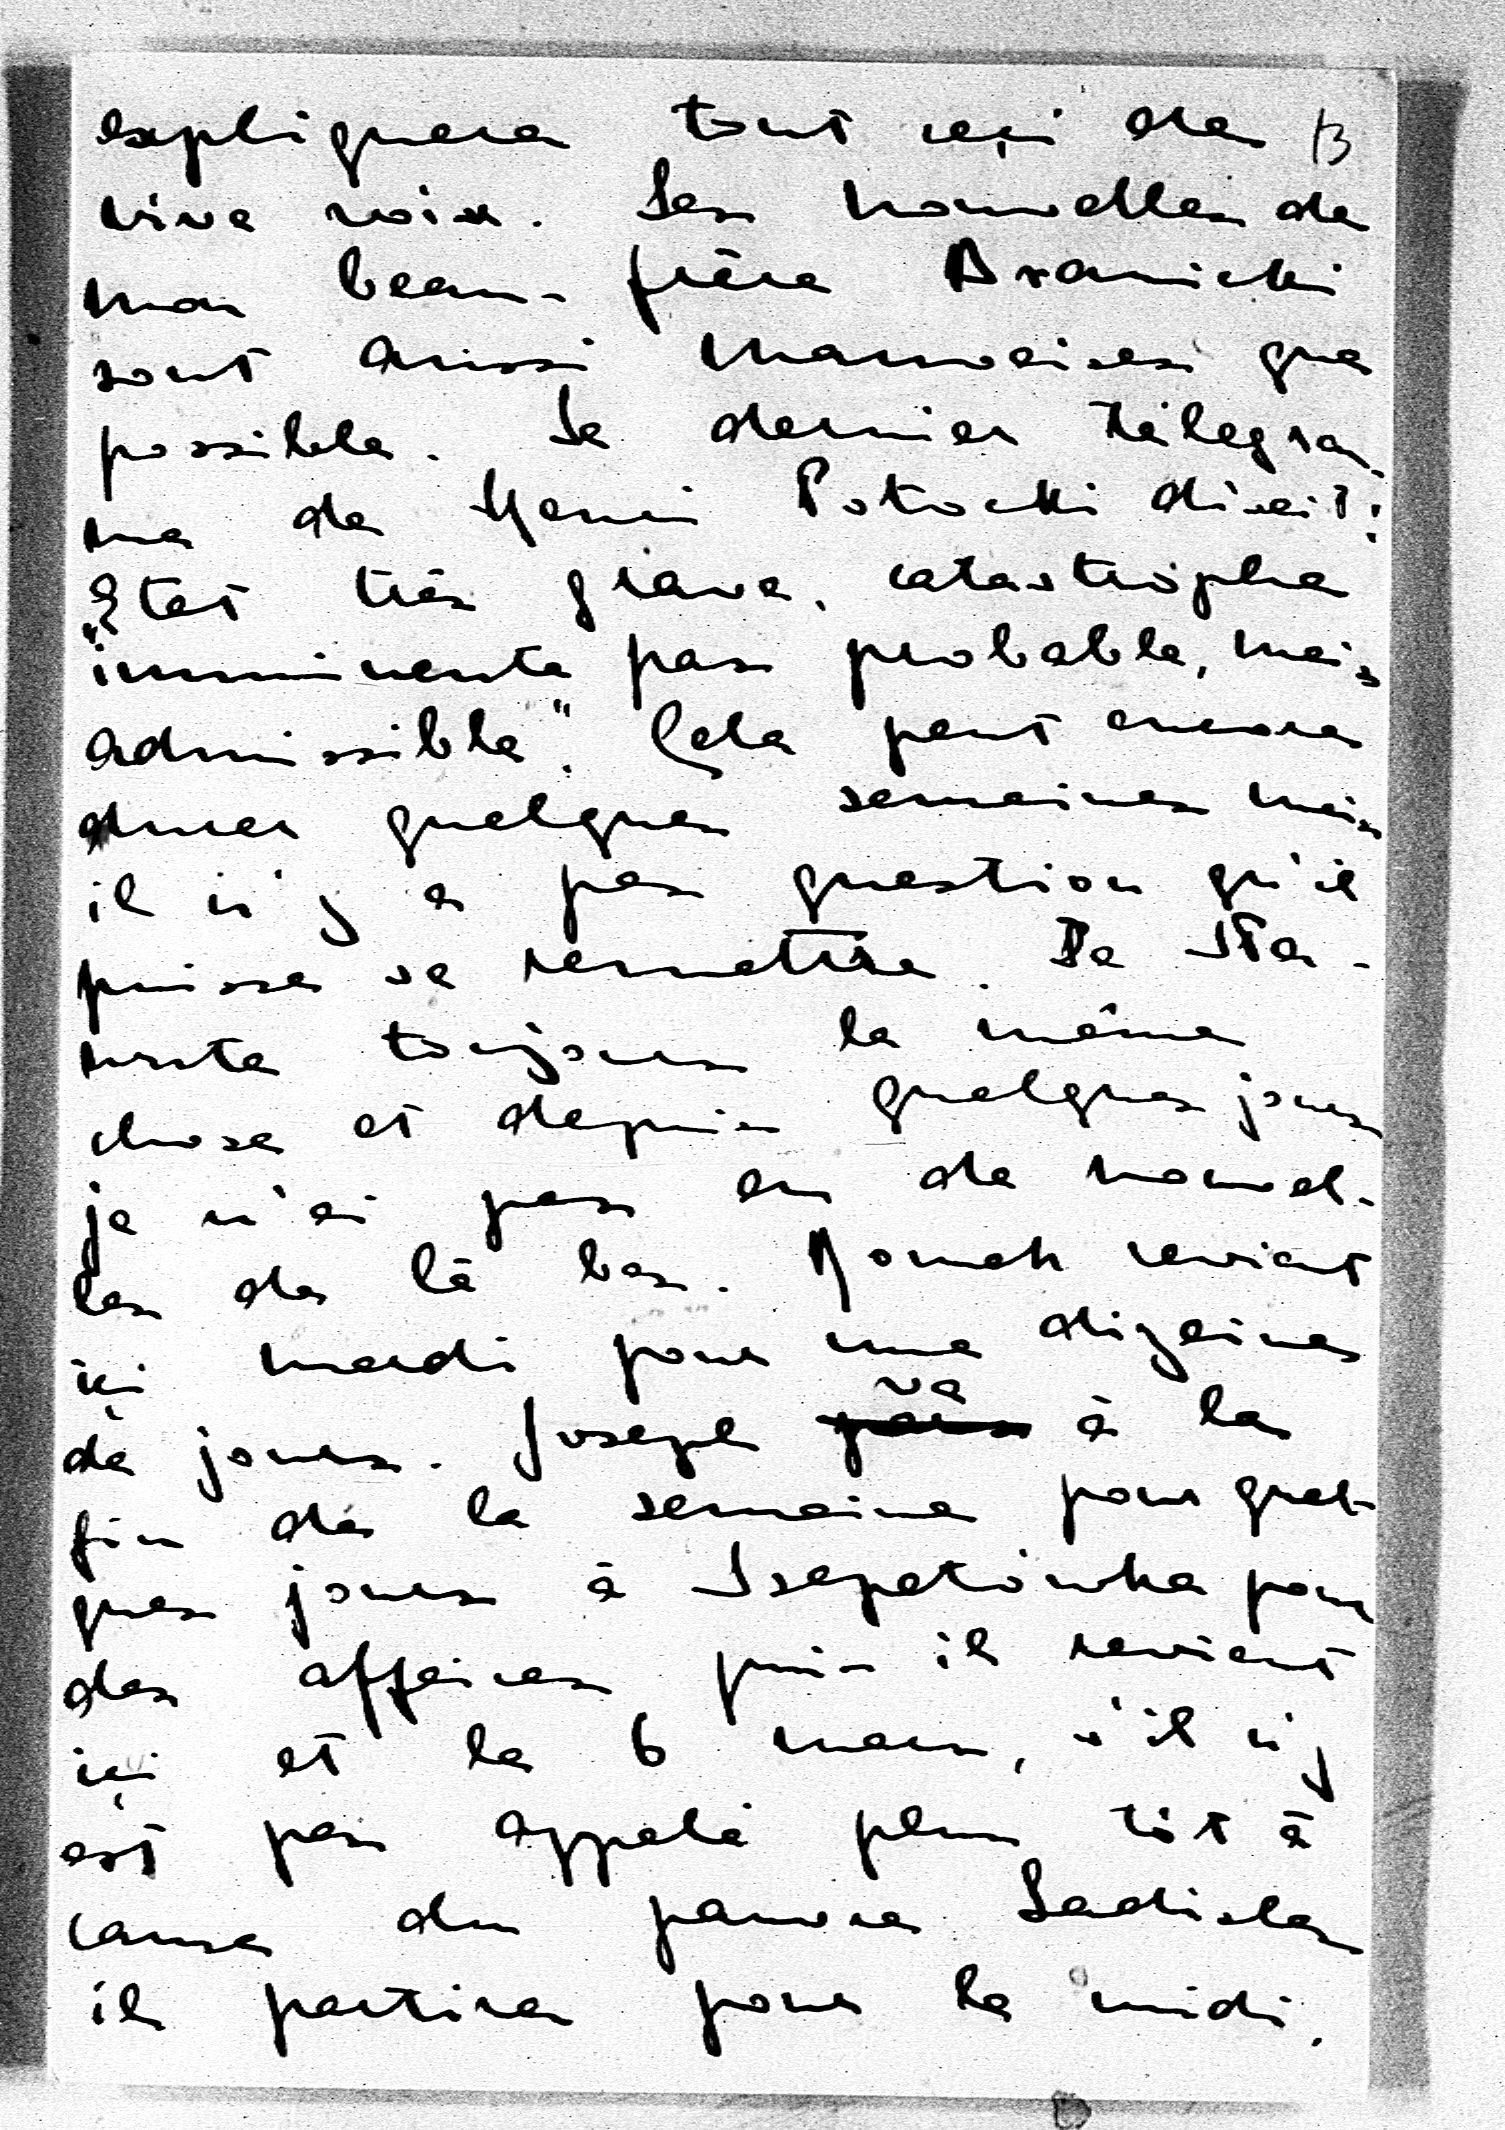 expliquera tout ceçi de 13
vive voix. Les nouvelles de
mon beau-frère Branicki
sont aussi mauvaises que
possible. Le dernier télégra-
me de Mani Potocki disait:
„Etat très grave, catastrophe
imminente pas probable, mais
admissible". Cela peut encore
durer quelques semaines mais
il n'y a pas question qu'il
puisse se remettre. De Sta-
wuta toujours la même
chose et depuis quelques jours
je n'ai pas eu de nouvel-
les de là bas. Romek revient
içi mardi pour une dizaine
de jours. Joseph va à la
fin de la semaine pour quel-
ques jours à Szepetówka pour
des affaires puis il revient
içi et le 6 mars, s'il n'y
est pas appelé plus tôt à
cause du pauvre Ladislas
il partira pour le midi.